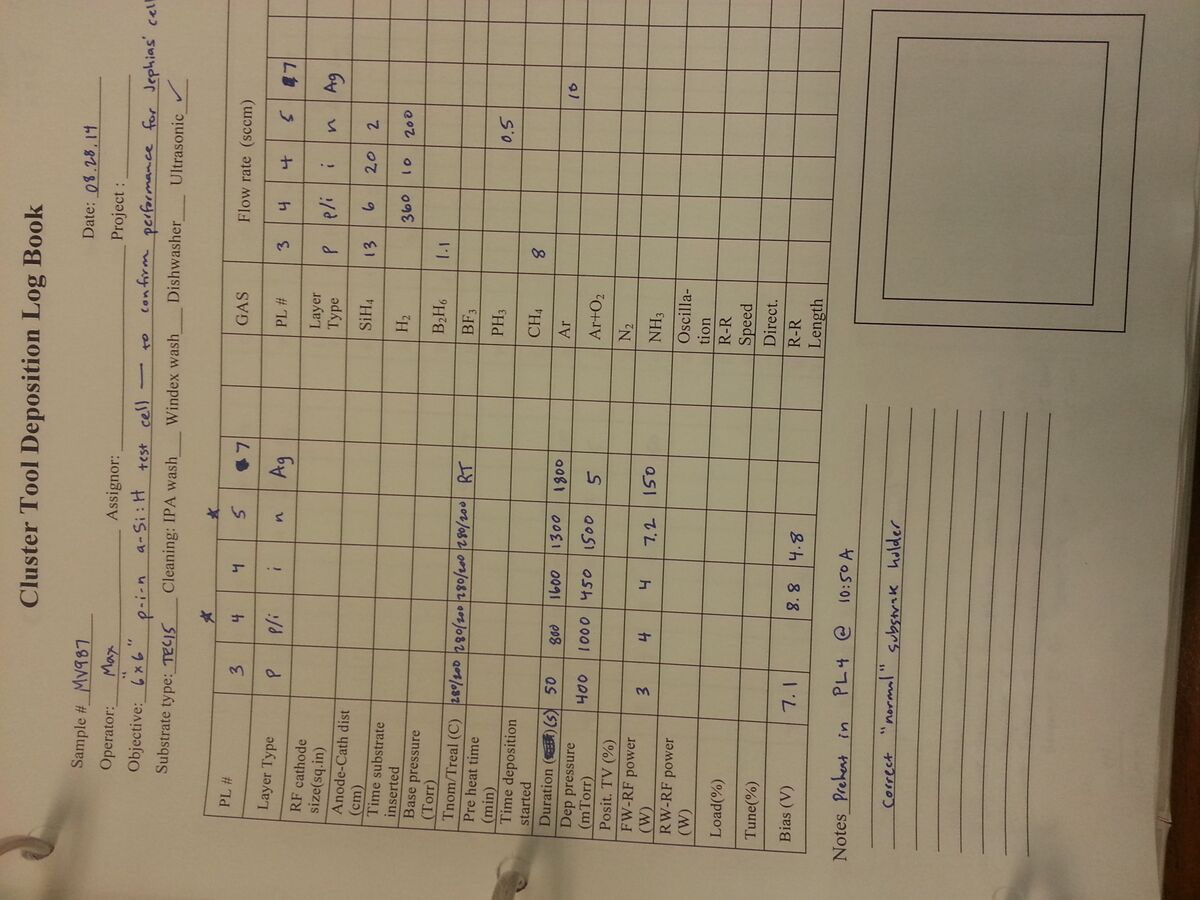 Cluster Tool Deposition Log Book
Sample # MV987 Date: 08.28.14
Operator: Max Assignor: Project :
Objective: 6x6" p-i-n a-Si:H test cell — to confirm performance for Jephias' cell
Substrate type: TEC15 Cleaning: IPA wash Windex wash Dishwasher Ultrasonic ✓
PL # 3 4 4 5 7
Layer Type p p/i i n Ag
RF cathode size(sq.in)
Anode-Cath dist (cm)
Time substrate inserted
Base pressure (Torr)
Tnom/Treal (C) 280/200 280/200 280/200 280/200 RT
Pre heat time (min)
Time deposition started
Duration (s) 50 800 1600 1300 1800
Dep pressure (mTorr) 400 1000 450 1500 5
Posit. TV (%)
FW-RF power (W) 3 4 4 7.2 150
RW-RF power (W)
Load(%)
Tune(%)
Bias (V) 7.1 8.8 4.8
GAS Flow rate (sccm)
PL # 3 4 4 5 7
Layer Type p p/i i n Ag
SiH4 13 6 20 2
H2 360 10 200
B2H6 1.1
BF3
PH3 0.5
CH4 8
Ar 10
Ar+O2
N2
NH3
Oscillation
R-R Speed
Direct.
R-R Length
Notes Preheat in PL4 @ 10:50A
Correct "normal" substrate holder